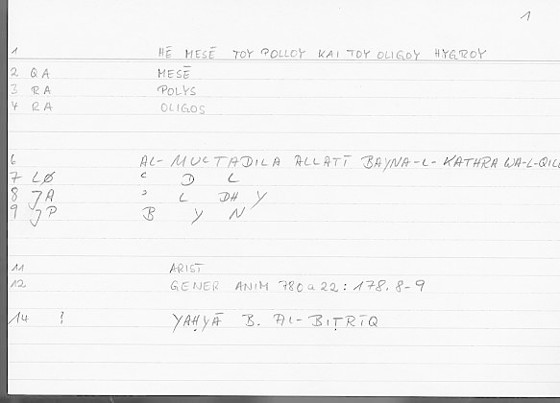 1
1 HĒ MESĒ TOY POLLOY KAI TOY OLIGOY HYGROY
2 QA MESĒ
3 RA POLYS
4 RA OLIGOS
6 AL-MUCTADILA ALLATĪ BAYNA-L-KATHRA WA-L-QILL
7 LØ C D L
8 JA ʾ L DH Y
9 JP B Y N
11 ARIST
12 GENER ANIM 780a22: 178.8-9
14 ? YAḤYĀ B. AL-BIṬRĪQ